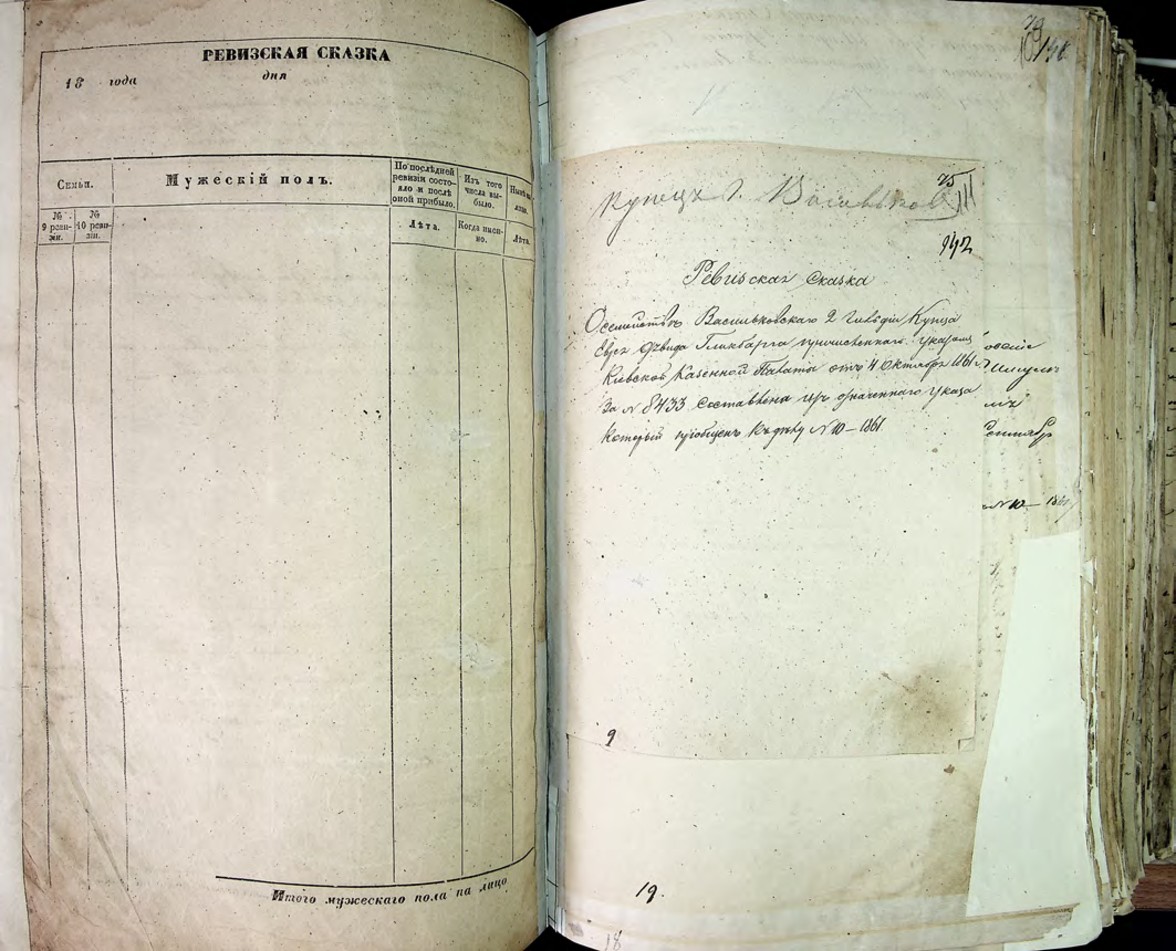 РЕВИЗСКАЯ СКАЗКА
18 года дня
Семьи.
Мужескій полъ.
По послѣдней ревизіи состояло и послѣ оной прибыло.
Изъ того числа выбыло.
№ 9 ревизіи.
№ 10 ревизіи.
Лѣта.
Когда именно.
Лѣта.
Итого мужескаго пола на лицо
148
75
Купецъ г. Васильков
942
Ревизская Сказка
О семействѣ Васильковскаго 2 гильдіи Купца
Еврея Глинбарга причисленнаго указомъ
Кіевской Казенной Палаты отъ 4 Октября 1861 г.
За № 8433 составлена изъ означеннаго указа
который пріобщенъ къ дѣлу № 10 – 1861
№ 10 – 1861
9
19.
18